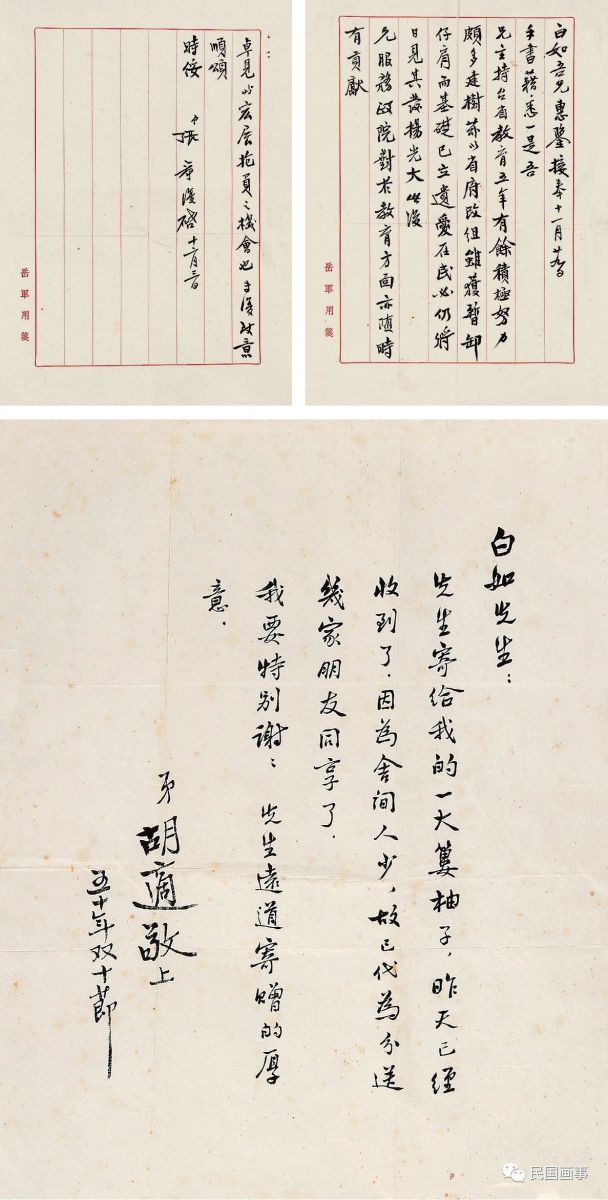 白如吾兄惠鑒接奉十一月廿九日
手書藉悉一是吾
兄主持台省教育五年有餘積極努力
頗多建樹茲以省府改組雖獲暫卸
仔肩而基礎已立遺愛在民必仍將
日見其發揚光大此後
兄服務政院對於教育方面亦隨時
有貢獻
岳軍用箋
卓見以宏展抱負之機會也專復敬意
順頌
時綏
張羣復啓 十二月三日
岳軍用箋
白如先生:
先生寄給我的一大簍柚子,昨天已經
收到了.因為舍間人少,故已代為分送
幾家朋友同享了.
我要特別謝謝 先生遠道寄贈的厚
意.
弟 胡適敬上
五十年双十節
民国画事